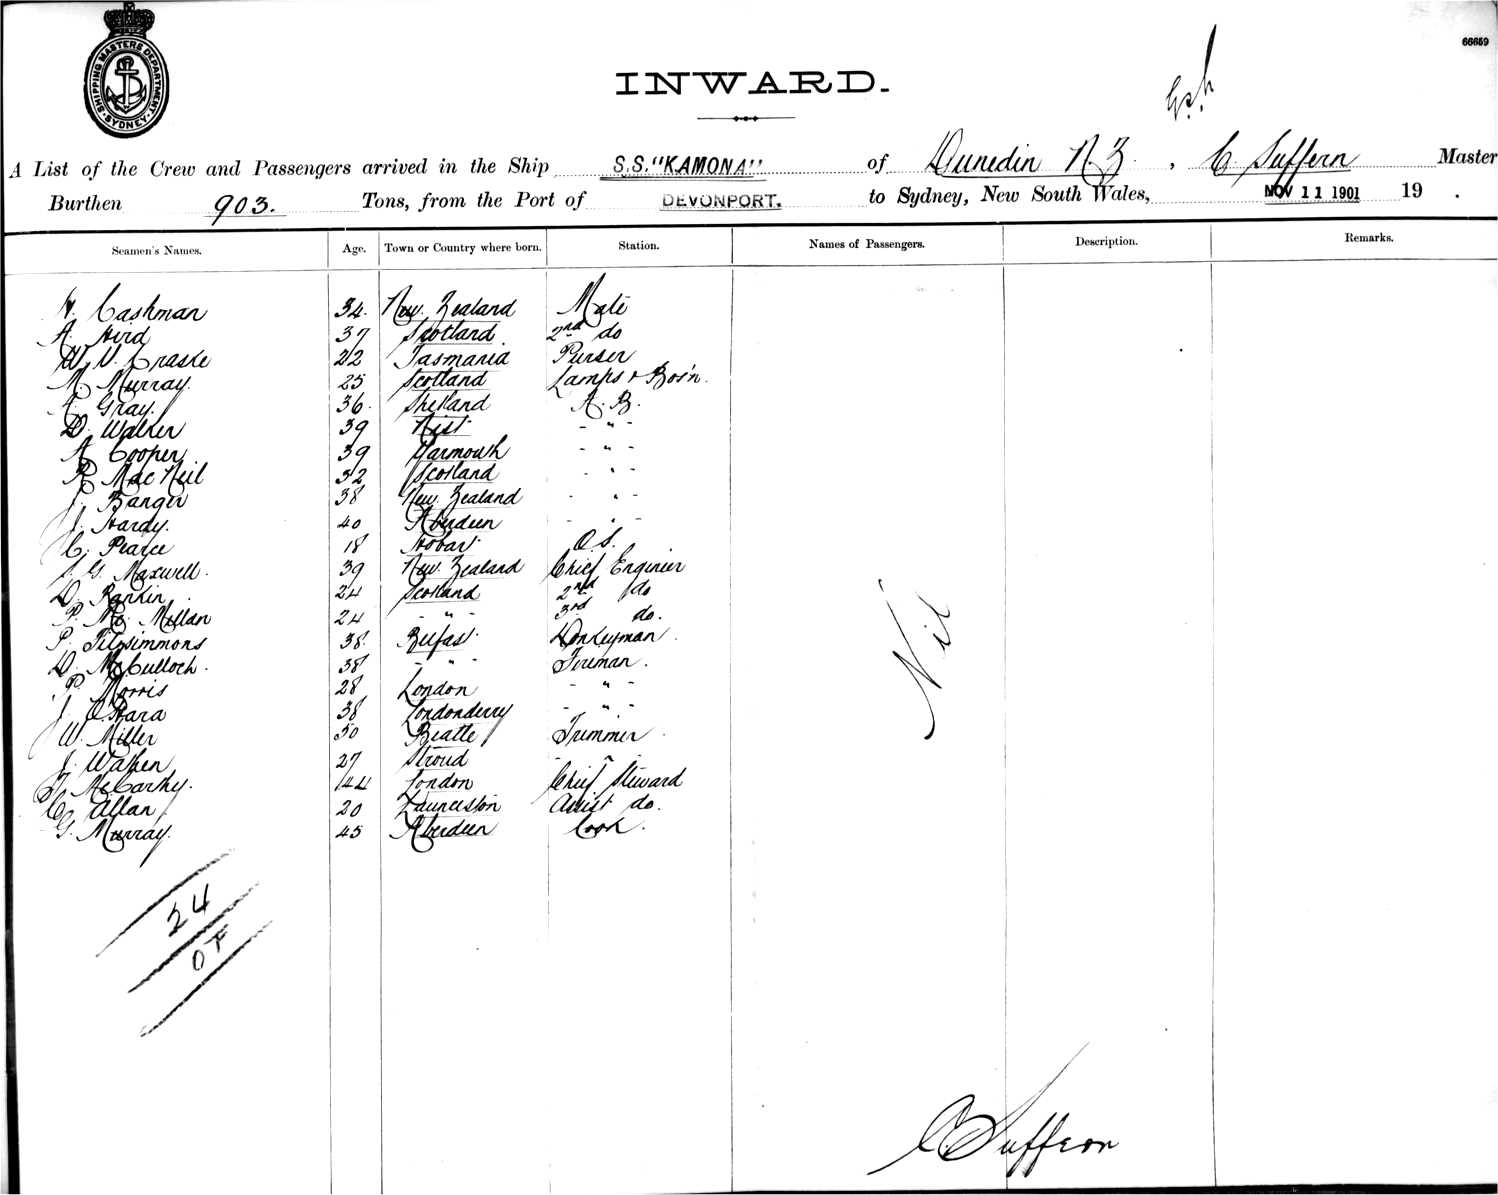 66659
SHIPPING MASTERS DEPARTMENT
SYDNEY
INWARD.
A List of the Crew and Passengers arrived in the Ship S.S. "KAMONA" of Dunedin N.Z., C. Suffern Master
Burthen 903. Tons, from the Port of DEVONPORT. to Sydney, New South Wales, NOV 11 1901 19 .
Seamen's Names. Age. Town or Country where born. Station. Names of Passengers. Description. Remarks.
Cashman 34. New Zealand Mate
A. Hird 37 Scotland 2nd do
W. V. Craske 22 Tasmania Purser
M. Murray. 25 Scotland Lamps & Bos'n.
A. Gray. 36. Shetland A. B.
D. Walker 39 - " -
A. Cooper 39 Yarmouth - " -
R. MacNeil 32 Scotland - " -
J. Banger 38 New Zealand - " -
J. Hardy. 40 Aberdeen - " -
C. Pearce 18 Hobart O.S.
J. G. Maxwell. 39 New Zealand Chief Enginier
D. Rankin 24 Scotland 2nd do
P. Mc. Millan 24 - " - 3rd do.
P. Fitzsimmons 38 Belfast Donkeyman.
D. McCulloch. 38 - " - Fireman.
P. Morris 28 London - " -
J. O'Hara 38 Londonderry - " -
W. Miller 50 Trimmer
J. 27 Stroud - " -
McCarthy. 44 London Chief Steward
C. Allan 20 Launceston Assist do.
G. Murray. 45 Aberdeen Cook.
Nil
24
C Suffern